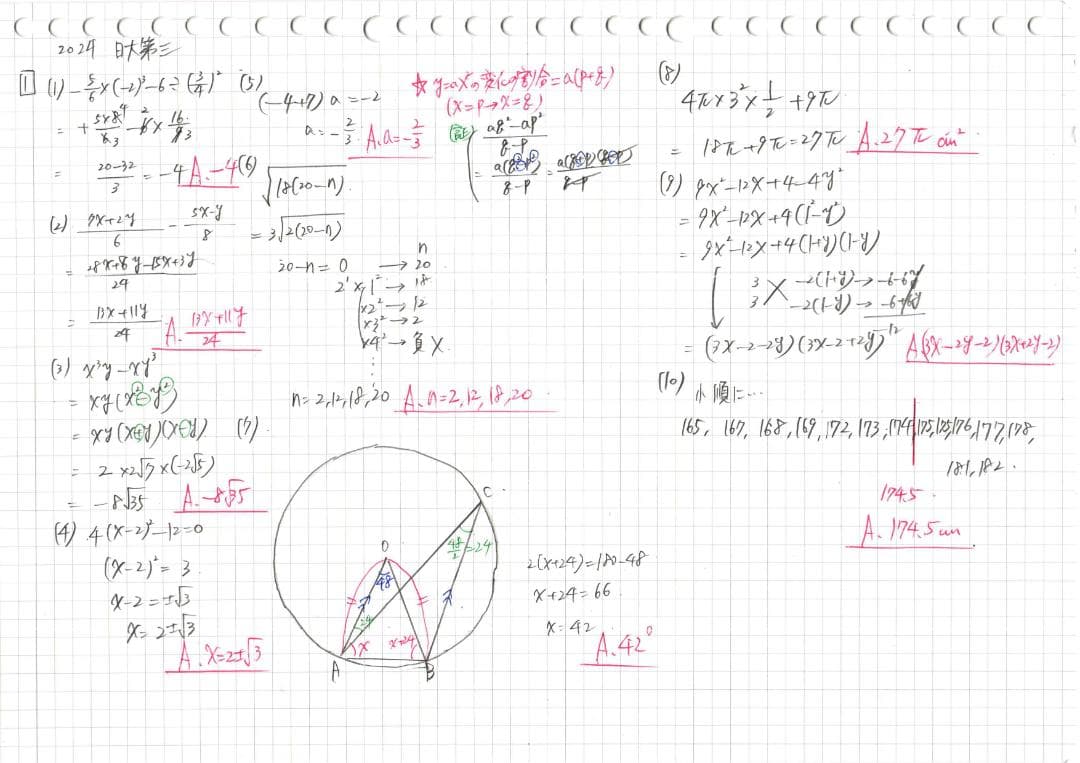 2024 日大第三
1
(1) -5/6×(-2)³-6÷(3/4)²
= +5×8⁴/6₃ - 6²×16/9₃
= 20-32/3 = -4 A.-4
(2) 7x+2y/6 - 5x-y/8
= 28x+8y-15x+3y/24
= 13x+11y/24 A. 13x+11y/24
(3) x³y-xy³
= xy(x²-y²)
= xy(x+y)(x-y)
= 2×2√7×(-2√5)
= -8√35 A.-8√35
(4) 4(x-2)²-12=0
(x-2)² = 3
x-2=±√3
x=2±√3
A. x=2±√3
(5) (-4+7)a=-2
a=-2/3 A.a=-2/3
☆ y=ax²の変化の割合=a(p+q)
(x=p→x=q)
(証) aq²-ap²/q-p
= a(q²-p²)/q-p = a(q+p)(q-p)/q-p
(6) √18(20-n)
= 3√2(20-n)
n
20-n= 0 → 20
2×1² → 18
×2² → 12
×3² → 2
×4² → 負 ×
n=2,12,18,20 A. n=2,12,18,20
(7)
C
O
48/2=24
48
24
x
x+24
A
B
2(x+24)=180-48
x+24=66
x=42
A.42°
(8)
4π×3²×1/2+9π
= 18π+9π=27π A.27π cm²
(9) 9x²-12x+4-4y²
= 9x²-12x+4(1²-y²)
= 9x²-12x+4(1+y)(1-y)
3 -2(1+y)→-6-6y
3 -2(1-y)→-6+6y
-12
= (3x-2-2y)(3x-2+2y) A(3x-2y-2)(3x+2y-2)
(10) 小順に…
165, 167, 168, 169, 172, 173, 174, 175, 175, 176, 177, 178,
181, 182.
174.5
A. 174.5cm